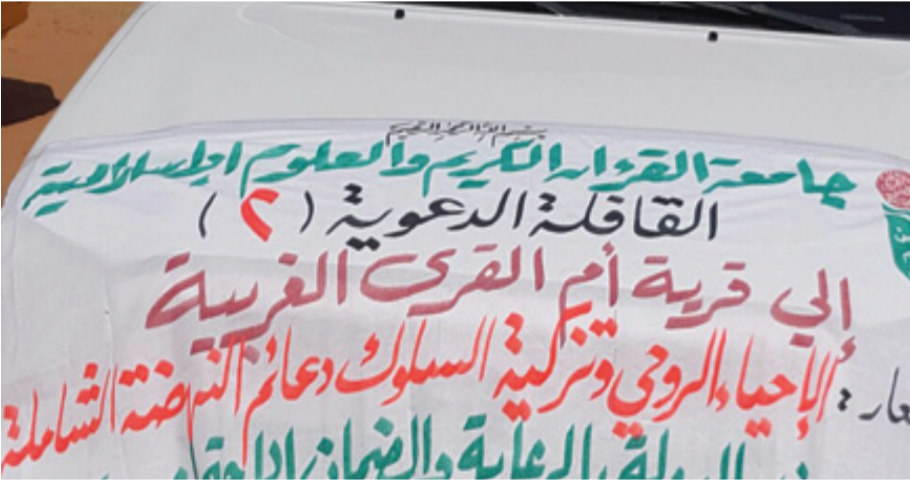 بسم الله الرحمن الرحيم
جامعة القرءان الكريم والعلوم الإسلامية
القافلة الدعوية ( ٢ )
إلي قرية أم القرى الغربية
عار : الإحياء الروحي وتزكية السلوك دعائم النهضة الشاملة
الرعاية والضمان